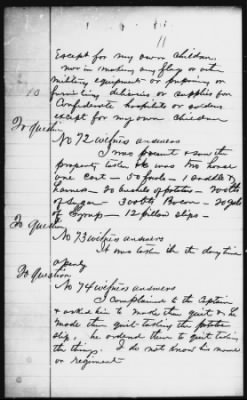 11
Except for my own children
nor in making any flag or other
military equipments or preparing or
furnishing delicacies or supplies for
Confederate hospitals or soldiers
except for my own children
To question
No 72 witness answers
I was present & saw the
property taken it was two horses
one cart – 50 fowls – 1 saddle &
harness – 20 bushels of potatoes – 200 lbs
of Sugar 300 lbs Bacon – 20 gals
of Syrup – 12 pillow slips –
To question
No 73 witness answers
It was taken in the day time
openly
To question
No 74 witness answers
I complained to the Captain
& asked him to make them quit & he
made them quit taking the potato
slips, he ordered them to quit taking
the things. I do not know his name
or regiment